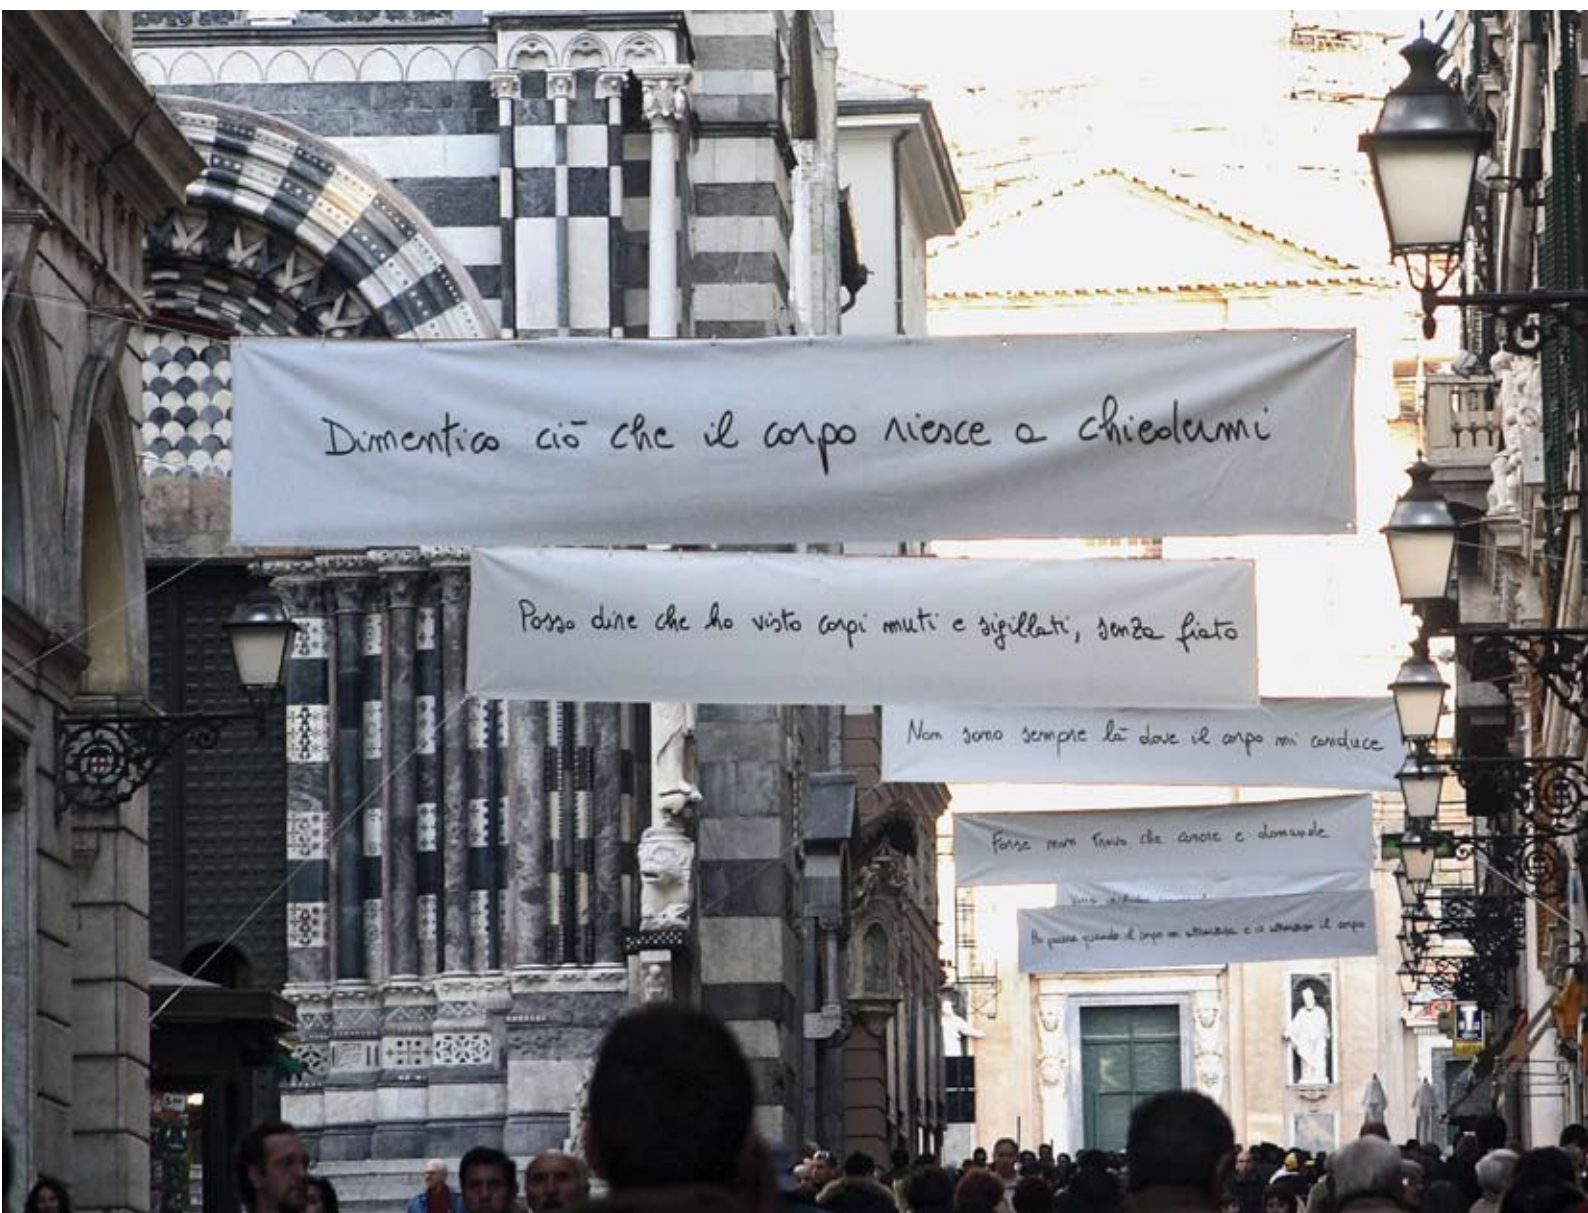 Dimentico ciò che il corpo riesce a chiedermi
Posso dire che ho visto corpi muti e sigillati, senza fiato
Non sono sempre là dove il corpo mi conduce
Forse non trovo che carene e domande
Ho paura quando il corpo mi attraversa e io attraverso il corpo